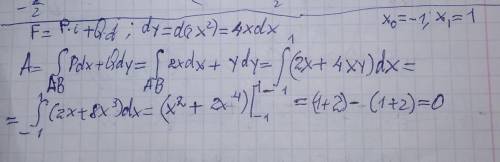 -2/2
F = P·i + Qd ; dy = d(2x²) = 4xdx
x₀ = -1; x₁ = 1
A = ∫_AB Pdx + Qdy = ∫_AB 2xdx + ydy = ∫_-1^1 (2x + 4xy)dx =
= ∫_-1^1 (2x + 8x³)dx = (x² + 2x⁴)|_-1^1 = (1+2) - (1+2) = 0